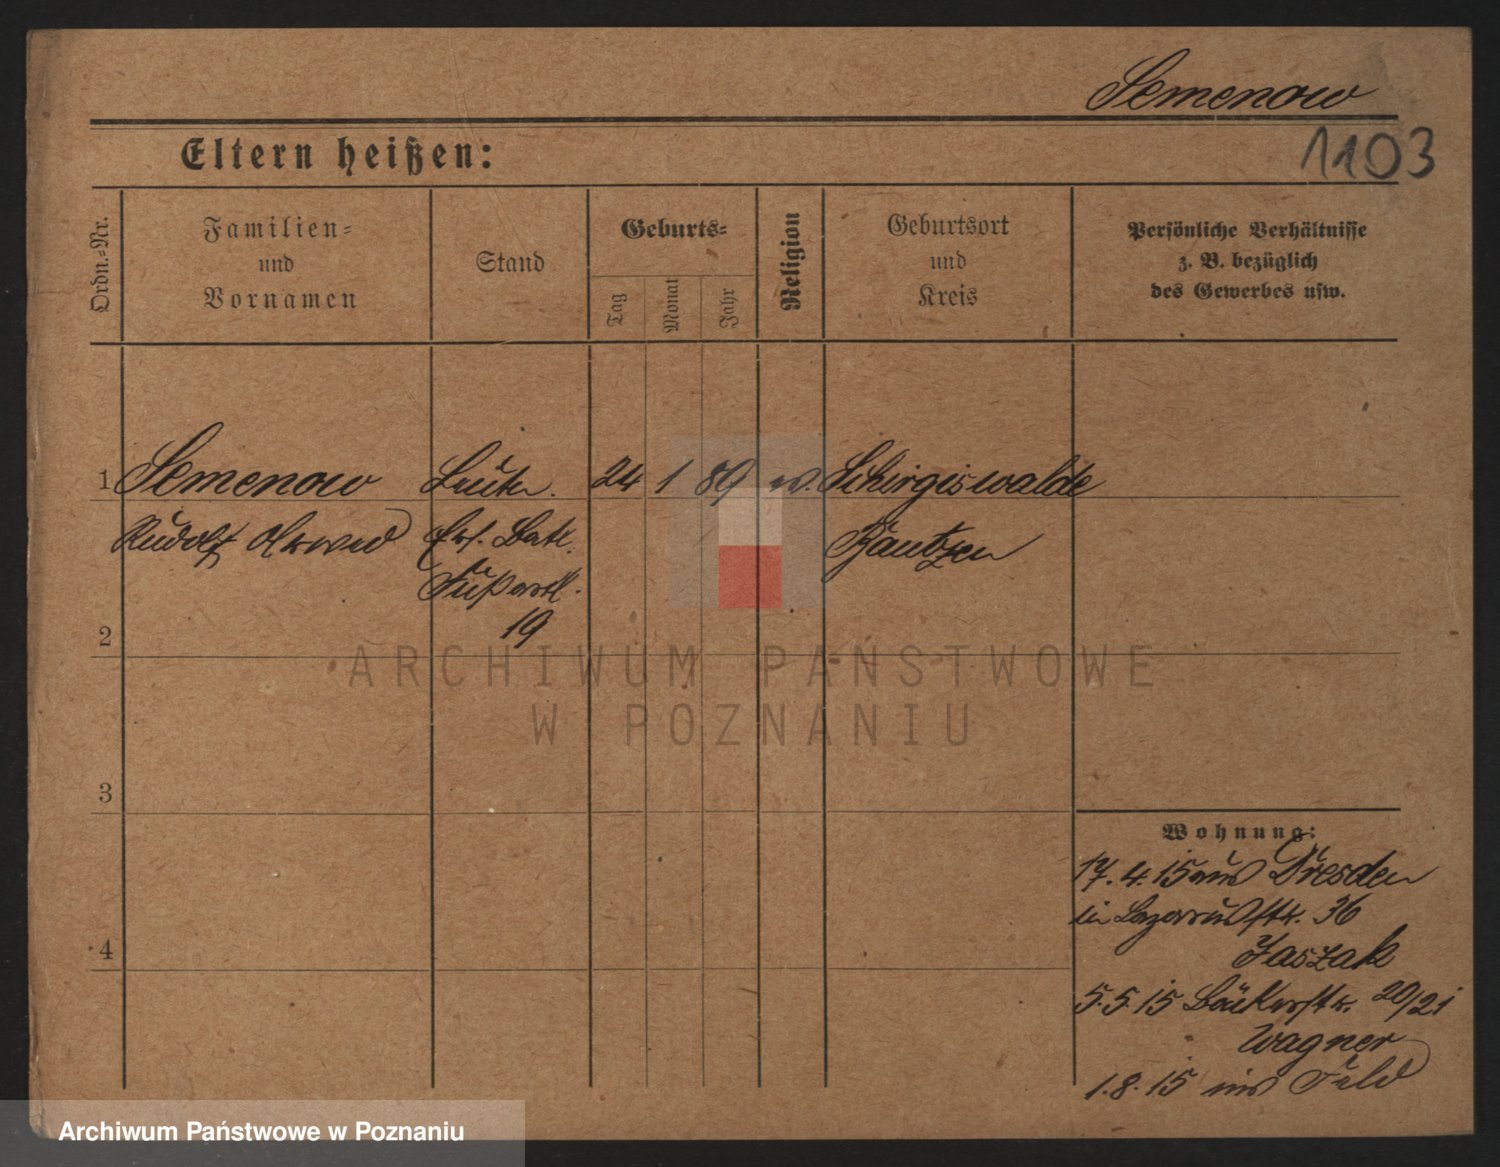 Semenow
1103
Eltern heißen:
Ordn.-Nr.
Familien-
und
Vornamen
Stand
Geburts-
Tag
Monat
Jahr
Religion
Geburtsort
und
Kreis
Persönliche Verhältnisse
z. B. bezüglich
des Gewerbes usw.
1 Semenow Leutn. 24 1 89 Schirgiswalde
Rudolf Arwed Ers. Batl. Bautzen
Fußartl.
19
2
3
4
Wohnung:
17.4.15 aus Dresden
in Lazarusstr. 36
Jaszak
5.5.15 Bäckerstr. 20/21
Wagner
1.8.15 ins Feld
ARCHIWUM PAŃSTWOWE
W POZNANIU
Archiwum Państwowe w Poznaniu